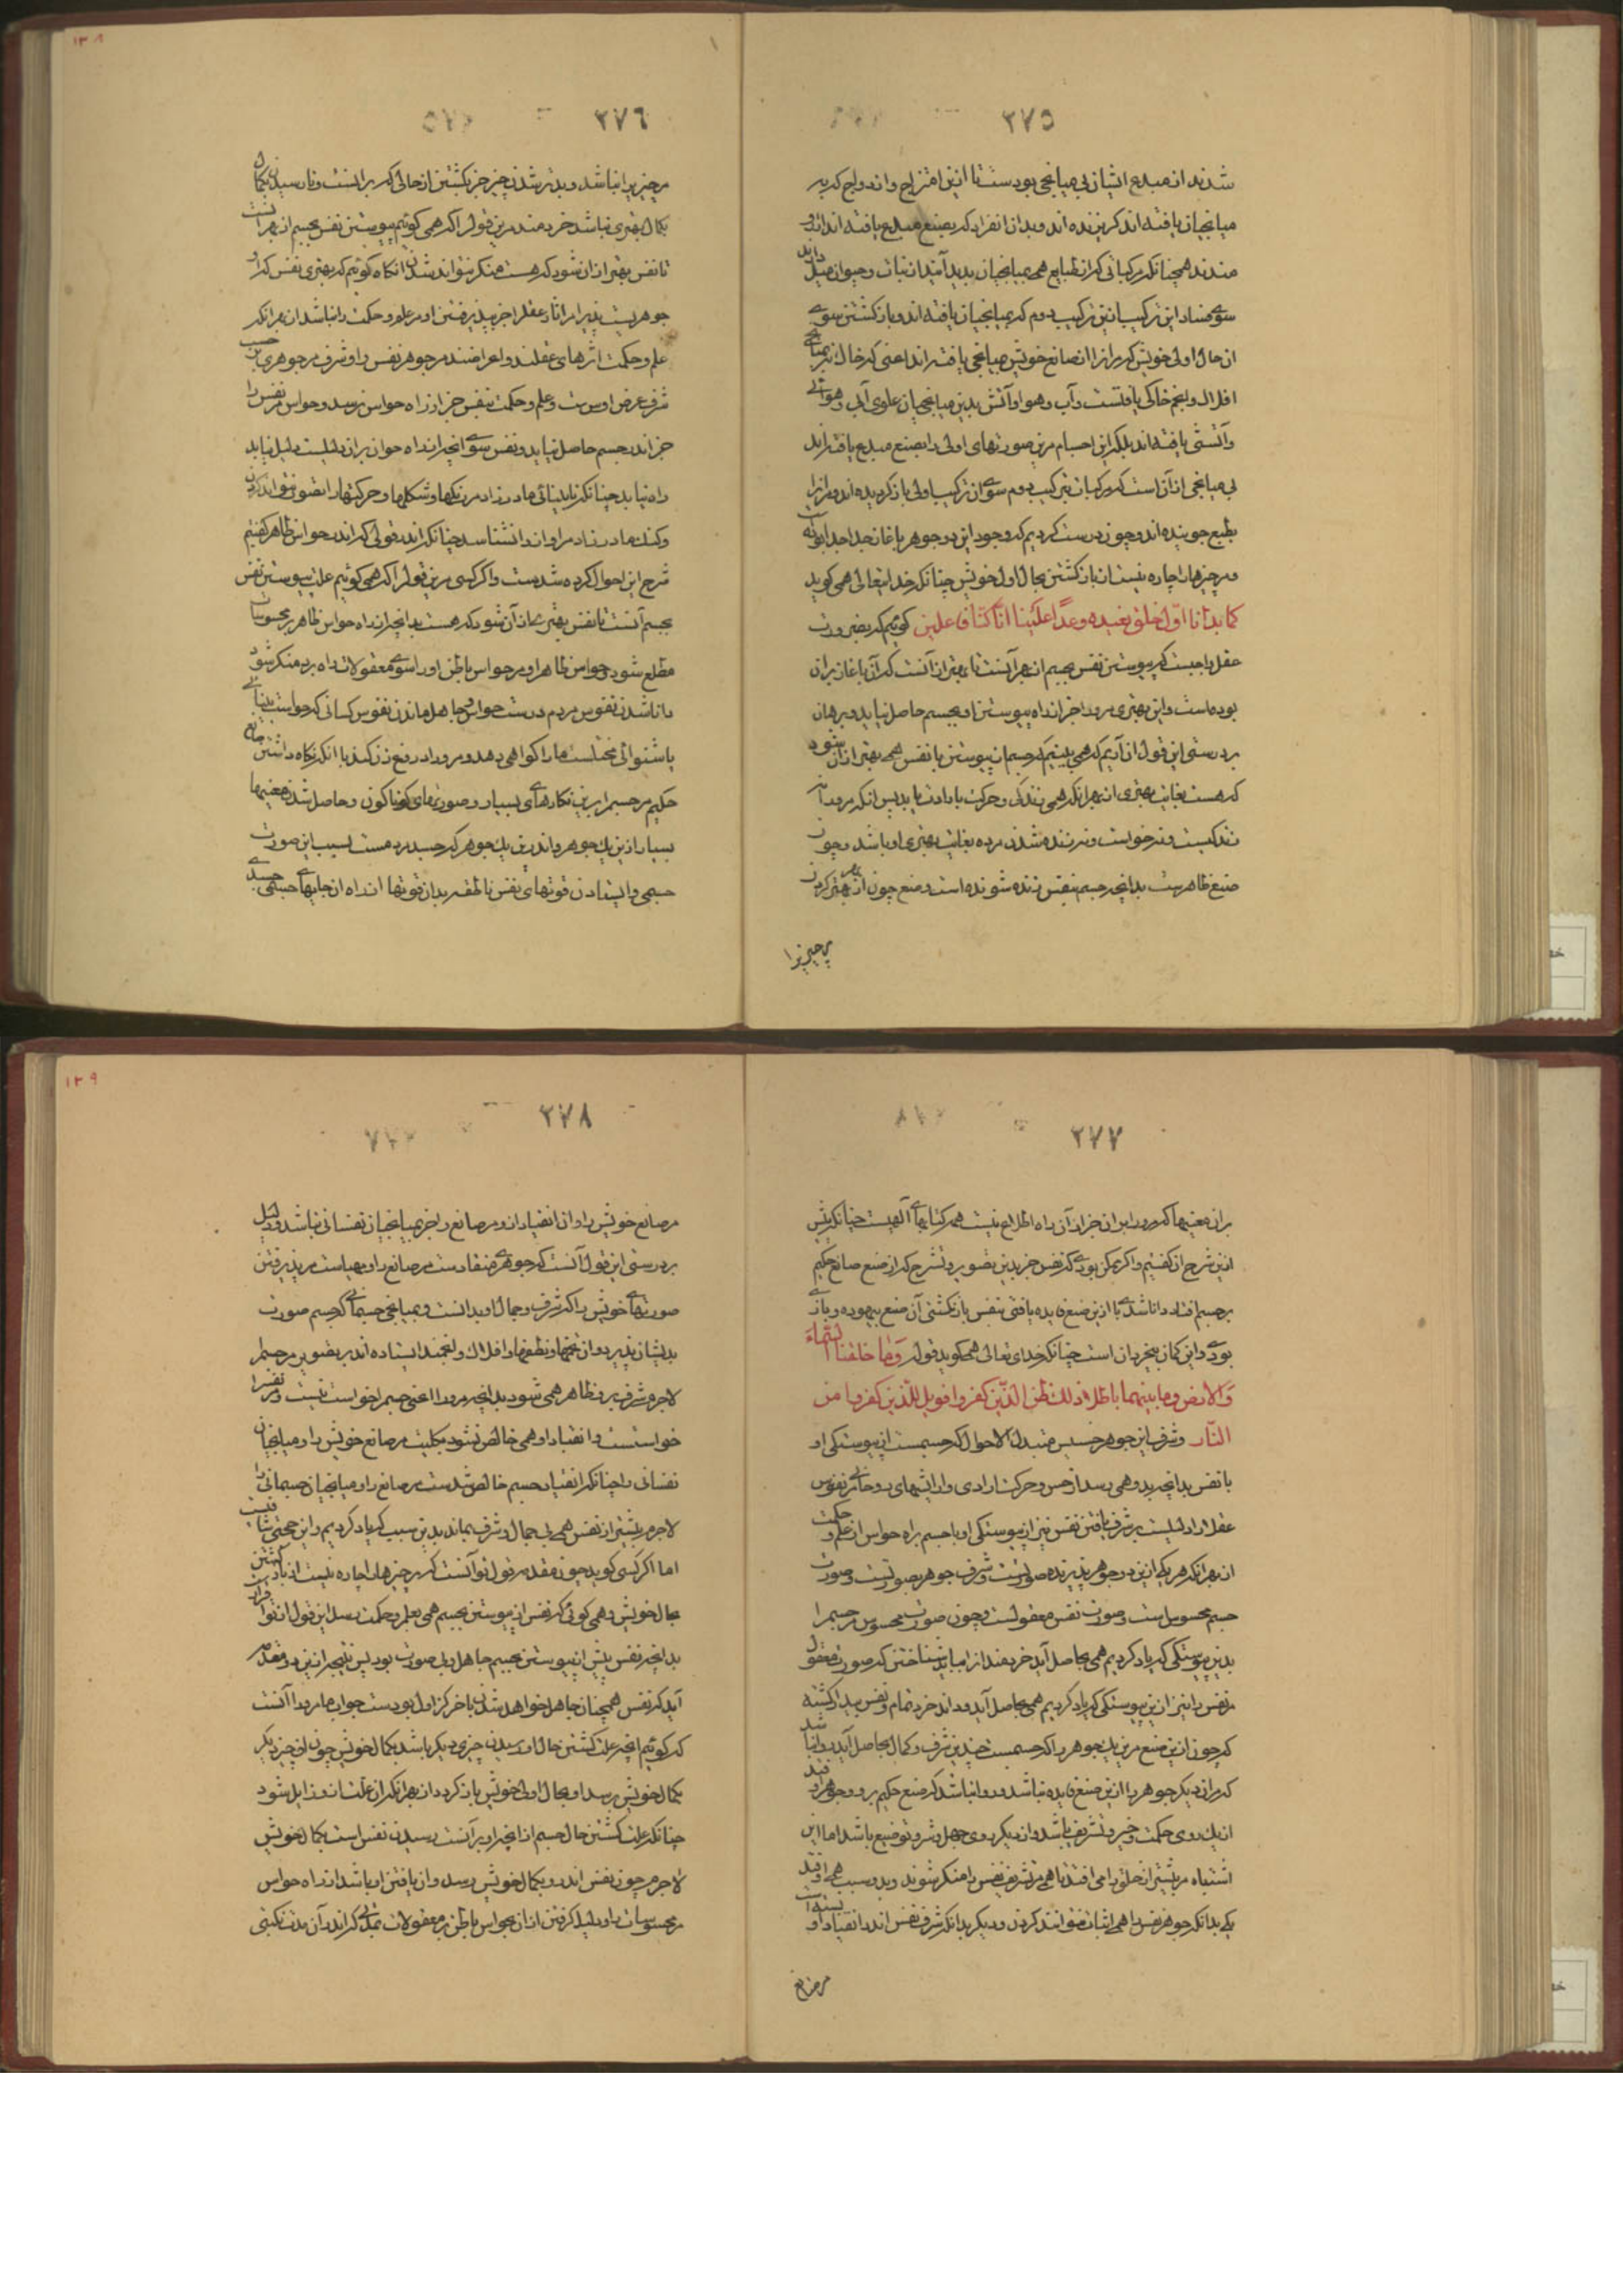 ٣٧٥
شدند از مبدع ایشان بی میانجی بودست تا ازین امتزاج و اندواج که به
میانجیان یافته اند گریزنده اند و بدان انفراد که بصنع مبدع یافته اند
مندند همچنانکه مرکباتی که از طبایع همی بمیانجیان پدید آیند از نبات و حیوان میل دارند
سوی فساد این ترکیب ازین ترکیب دوم که بمیانجیان یافته اند و بازگشتن سوی
آن حال اولی خویش که مر آنرا از صانع خویش بی میانجی یافته اند اعنی که خاک
افلاک و انجم خاکی یافتست و آب و هوا و آتش بدین میانجیان علوی آبی و هوائی
و آتشی یافته اند بلکه این اجسام مرین صورتهای اولی را بصنع مبدع یافته اند
بی میانجی از آن است که مرکبات بترکیب دوم سوی آن ترکیب اولی بازگردیده اند و مر آنرا
بطبع جوینده اند و چون درست کردیم که وجود این دو جوهر باغاز جدا جدا بوده
و مر چیزها را چاره نیست از بازگشتن بحال اول خویش چنانکه خدایتعالی همی گوید
کما بدانا اوّل خلق نعیده وعدًا علَینا انّا کنّا فاعلین گوئیم که بضرورت
عقل واجبست که پیوستن نفس بجسم از بهر آنست تا بهتر از آنست که آن باغاز بران
بوده است و این بهتری مرورا جز از راه پیوستن او بجسم حاصل نیاید و برهان
بر درستی این قول از آن آریم که همی بینیم که جسم از پیوستن با نفس همی بهتر از آن شود
که هست بغایت بهتری از بهر آنکه همی زندگی و حرکت بارادت یابد پس آنکه مرورا
زندگیست و نه خواست و نه زنده شدن مرده بغایت بهتری او باشد و چون
صنع ظاهرست بدانچه جسم بنفس زنده شونده است و صنع چون از بهر بهتر کردن
مر چیزرا
٣٧٦
مر چیز را نباشد و بدتر شدن چیز جز بگشتن از حالی که بر آنست و نارسیدن بکمال
بکمال بهتری نباشد خردمند مرین قول را که همی گوئیم پیوستن نفس بجسم از بهر آنست
تا نفس بهتر از آن شود که هست منکر نتواند شدن آنگاه گوئیم که بهتری نفس که او
جوهریست پذیرا مر آثار عقل را جز پذیرفتن او مر علم و حکمت را نباشد از بهر آنکه
علم و حکمت اثرهای عقلند و اعراضند مر جوهر نفس را و شرف مر جوهری
شرف عرض اوست و علم و حکمت بنفس جز از راه حواس نرسد و حواس مر نفس را
جز اندر جسم حاصل نیاید و نفس سوی آنچه از راه حواس بر آن دلیلست دلیل نیابد
راه نیابد چنانکه نابینائی مادرزاد مر رنگها و شکلها و حرکتها را تصور نتواند کردن
و گنگ مادرزاد مر آواز را نشناسد چنانکه اندر قولی که اندر حواس ظاهر گفتیم
شرح این احوال کرده شدست و اگر کسی مرین قول را که همی گوئیم علت پیوستن نفس
بجسم آنست تا نفس بهتر از آن شود که هست بدانچه از راه حواس ظاهر بر محسوسات
مطلع شود و حواس ظاهر او مر حواس باطن او را سوی معقولات راه برد منکر شود
دانا شدن نفوس مردم درست حواس و جاهل ماندن نفوس کسانی که حواست بینائی
یا شنوائی مختلست ما را گواهی دهد و مرورا دروغ زن کند با آنکه نگاه داشتن صانع
حکیم مر جسم را برین نگارهای بسیار و صورتهای گوناگون و حاصل شدن معنیها
بسیار ازین یک جوهر و اندرین یک جوهر که جسد مردمست بسبب این صورت
جسمی و ایستادن قوتهای نفس ناطقه بدان قوتها اندر راه از جایهای جسمی جسدی
٣٧٧
بران معنیها که مرورا بران جز از آن راه اطلاع نیست همه کتابهای آلهیست چنانکه پیش
ازین شرح آن گفتیم و اگر ممکن بودی که نفس جز بدین تصویر و تشرح که از صنع صانع حکیم
بر جسم افتاد دانا شدی یا ازین صنع فایده یافتی بنفس بازنگشتی آن صنع بیهوده و بازی
بودی و این گمان بیخردان است چنانکه خدای تعالی همی گوید قوله وَمٰا خلقنا السّماءَ
وَالارض وما بینهما باطلا ذلک ظنّ الذّین کفروا فویل للّذین کفروا من
النّار و شرف این جوهر خسیس متبدل الاحوال که جسمست از پیوستگی او
با نفس بدانچه بدو همی رسد از حس و حرکت ارادی و آرایشهای روحانی مر نفوس
عقلا را دلیلست بر شرف یافتن نفس نیز از پیوستگی او با جسم براه حواس از علم و حکمت
از بهر آنکه هر یکی ازین دو جوهر پذیرنده صورتست و شرف جوهر بصورتست و صورت
جسم محسوس است و صورت نفس معقولست و چون صورت محسوس مر جسم را
بدین پیوستگی که یاد کردیم همی بحاصل آید خردمند را بباید شناختن که صورت معقول
مر نفس را نیز ازین پیوستگی که یاد کردیم همی بحاصل آید و داند خرد تمام و نفس بیدار گشته
که چون ازین صنع مرین یک جوهر را که جسمست چندین شرف و کمال بحاصل آید روا نباشد
که مر آن دیگر جوهر را ازین صنع فایده نباشد و روا نباشد که صنع حکیم بر دو جوهر افتد
از یک روی حکمت و خیر و تشریف باشد و از دیگر روی جهل و شر و توضیع باشد اما این
اشتباه مر بیشتر از خلق را می افتد تا همی مر تشریف نفس را منکر شوند و بدو سبب همی افتد
یکی بدانکه جوهر نفس را همی اثبات نتوانند کردن و دیگر بدانکه شرف نفس اندر انقیاد او
مر صانع
٣٧٨
مر صانع خویش را و آن انقیاد از و مر صانع را جز بمیانجیان نفسانی نباشد و دلیل
بر درستی این قول آنست که جوهر جسم منقادست مر صانع را و مهیاست مر پذیرفتن
صورتهای خویش را که شرف و جمال او بدانست و بمیانجی جسمانی که جسم صورت
بدیشان پذیرد و آن تخمها و نطفها و افلاک و انجمند ایستاده اند بر تصویر مر جسم را
لاجرم شرف بر و ظاهر همی شود بدانچه مرورا اعنی جسم را خواست نیست و مر نفس را
خواستست و انقیاد او همی خالص نشود بکلیت مر صانع خویش را و میانجیان
نفسانی را چنانکه انقیاد جسم خالص شدست مر صانع را و میانجیان جسمانی را
لاجرم بیشتر از نفس همی بی جمال و شرف بماند بدین سبب که یاد کردیم و این حجتی شافیست
اما اگر کسی گوید چون مقدمه قول تو آنست که مر چیزها را چاره نیست از بازگشتن
بحال خویش و همی گوئی که نفس از پیوستن بجسم همی بعلم و حکمت رسد این قول از تو اقرارست
بدانچه نفس پیش از پیوستن بجسم جاهل و بی صورت بود پس نتیجه ازین دو مقدمه
آید که نفس همچنان جاهل خواهد شدن باخر کز اول بودست جواب ما مرورا آنست
که گوئیم آنچه علت گشتن حال او رسیدن چیزی دیگر باشد بکمال خویش چون آن چیز دیگر
بکمال خویش رسد او بحال اولی خویش باز گردد از بهر آنکه آن علت ازو زایل شود
چنانکه علت گشتن حال جسم از آنچه او بر آنست رسیدن نفس است بکمال خویش
لاجرم چون نفس اندرو بکمال خویش رسد و آن یافتن او باشد از راه حواس
مر محسوسات را و دلیل گرفتن از آن بحواس باطن بر معقولات بمدتی که اندر آن مدت نگیتی